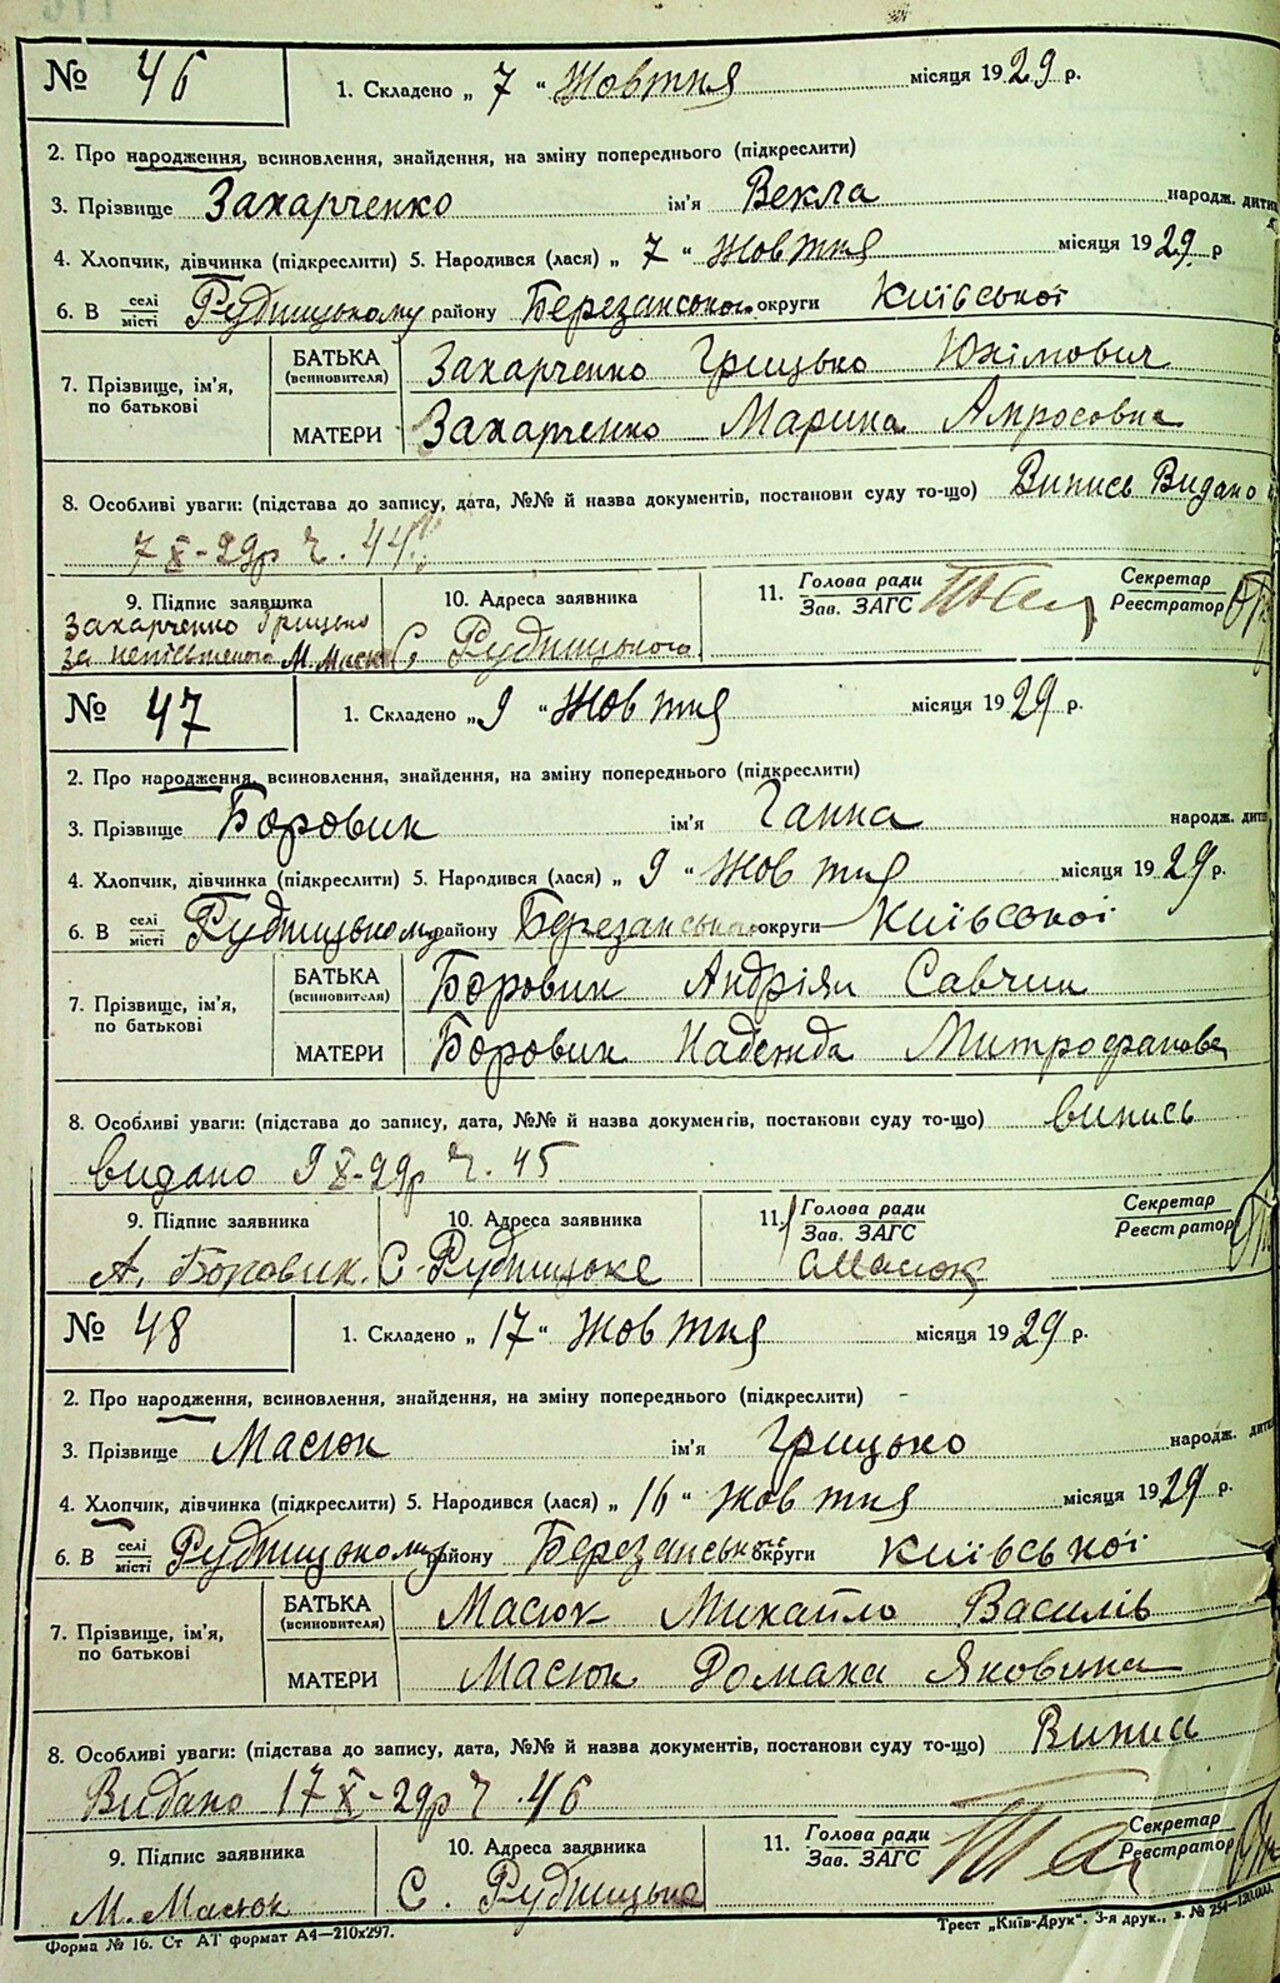 № 46 1. Складено „ 7 “ Жовтня місяця 1929 р.
2. Про народження, всиновлення, знайдення, на зміну попереднього (підкреслити)
3. Прізвище Захарченко ім'я Векла народж. дитин
4. Хлопчик, дівчинка (підкреслити) 5. Народився (лася) „ 7 “ Жовтня місяця 1929 р
6. В селі місті Рудницькому району Березанського округи Київської
7. Прізвище, ім'я, по батькові
БАТЬКА (всиновителя) Захарченко Грицько Юхімович
МАТЕРИ Захарченко Марина Амросовна
8. Особливі уваги: (підстава до запису, дата, №№ й назва документів, постанови суду то-що) Випись Видано
7 X-29р ч. 44
9. Підпис заявника 10. Адреса заявника 11. Голова ради Зав. ЗАГС Секретар Реєстратор
Захарченко Грицько
за неписьменого М. Масюк С. Рудницького
№ 47 1. Складено „ 9 “ Жовтня місяця 1929 р.
2. Про народження, всиновлення, знайдення, на зміну попереднього (підкреслити)
3. Прізвище Боровик ім'я Ганна народж. дити
4. Хлопчик, дівчинка (підкреслити) 5. Народився (лася) „ 9 “ Жовтня місяця 1929 р.
6. В селі місті Рудницькому району Березанського округи Київської
7. Прізвище, ім'я, по батькові
БАТЬКА (всиновителя) Боровик Андріян Савчин
МАТЕРИ Боровик Надежда Митрофанова
8. Особливі уваги: (підстава до запису, дата, №№ й назва документів, постанови суду то-що) випись
видано 9 X-29р ч. 45
9. Підпис заявника 10. Адреса заявника 11. Голова ради Зав. ЗАГС Секретар Реєстратор
А. Боровик. С. Рудницьке Масюк
№ 48 1. Складено „ 17 “ Жовтня місяця 1929 р.
2. Про народження, всиновлення, знайдення, на зміну попереднього (підкреслити)
3. Прізвище Масюк ім'я Грицько народж. дити
4. Хлопчик, дівчинка (підкреслити) 5. Народився (лася) „ 16 “ Жовтня місяця 1929 р.
6. В селі місті Рудницькому району Березанської округи Київської
7. Прізвище, ім'я, по батькові
БАТЬКА (всиновителя) Масюк Михайло Василів
МАТЕРИ Масюк Домаха Яковина
8. Особливі уваги: (підстава до запису, дата, №№ й назва документів, постанови суду то-що) Випис
Видано 17 X-29р ч. 46
9. Підпис заявника 10. Адреса заявника 11. Голова ради Зав. ЗАГС Секретар Реєстратор
М. Масюк С. Рудницьке
Форма № 16. Ст АТ формат А4—210х297. Трест „Київ-Друк“. 3-я друк., з. № 254—120.000.